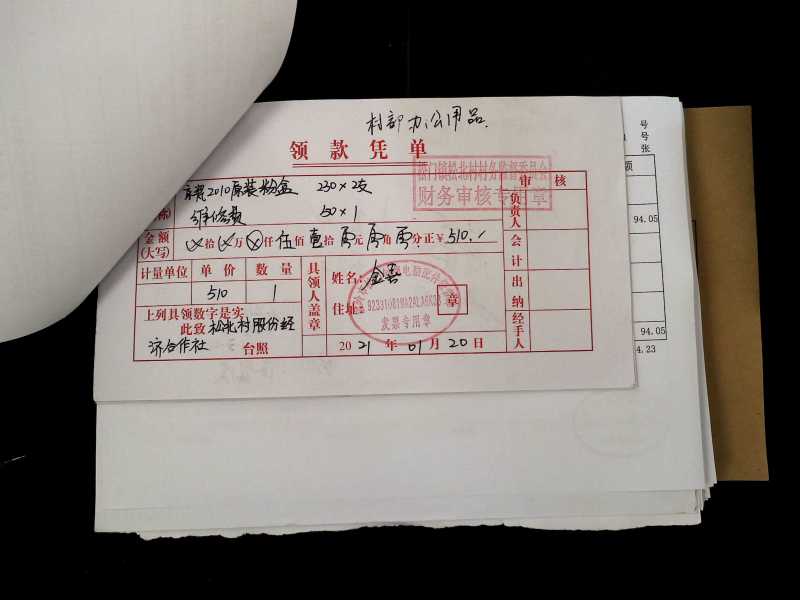 村部办公用品.
领款凭单
松门镇松北村村务监督委员会
财务审核专用章
2010原装粉盒 230×2支
维修费 50×1
金额(大写) 拾 万 仟 伍佰壹拾零元零角零分正¥510./
计量单位 单价 数量
510 1
上列具领数字是实
此致 松北村股份经
济合作社 台照
具领人盖章
姓名:金善
住址:
章
发票专用章
2021年01月20日
审核
负责人
会计
出纳
经手人
号
号
张
额
94.05
94.05
4.23